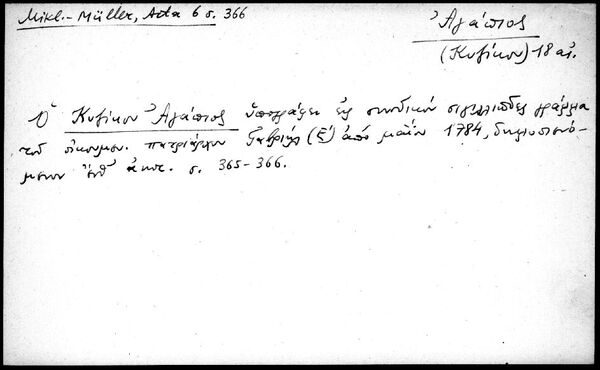 Mikl.-Müller, Acta 6 σ. 366
Ἀγάπιος
(Κυζίκου) 18 αἰ.
Ὁ Κυζίκου Ἀγάπιος ὑπογράφει εἰς συνοδικὸν σιγιλλιῶδες γράμμα
τοῦ οἰκουμεν. πατριάρχου Γαβριὴλ (Δ') ἀπὸ μαΐου 1784, δημοσιευό-
μενον ἔνθ' ἀνωτ. σ. 365-366.